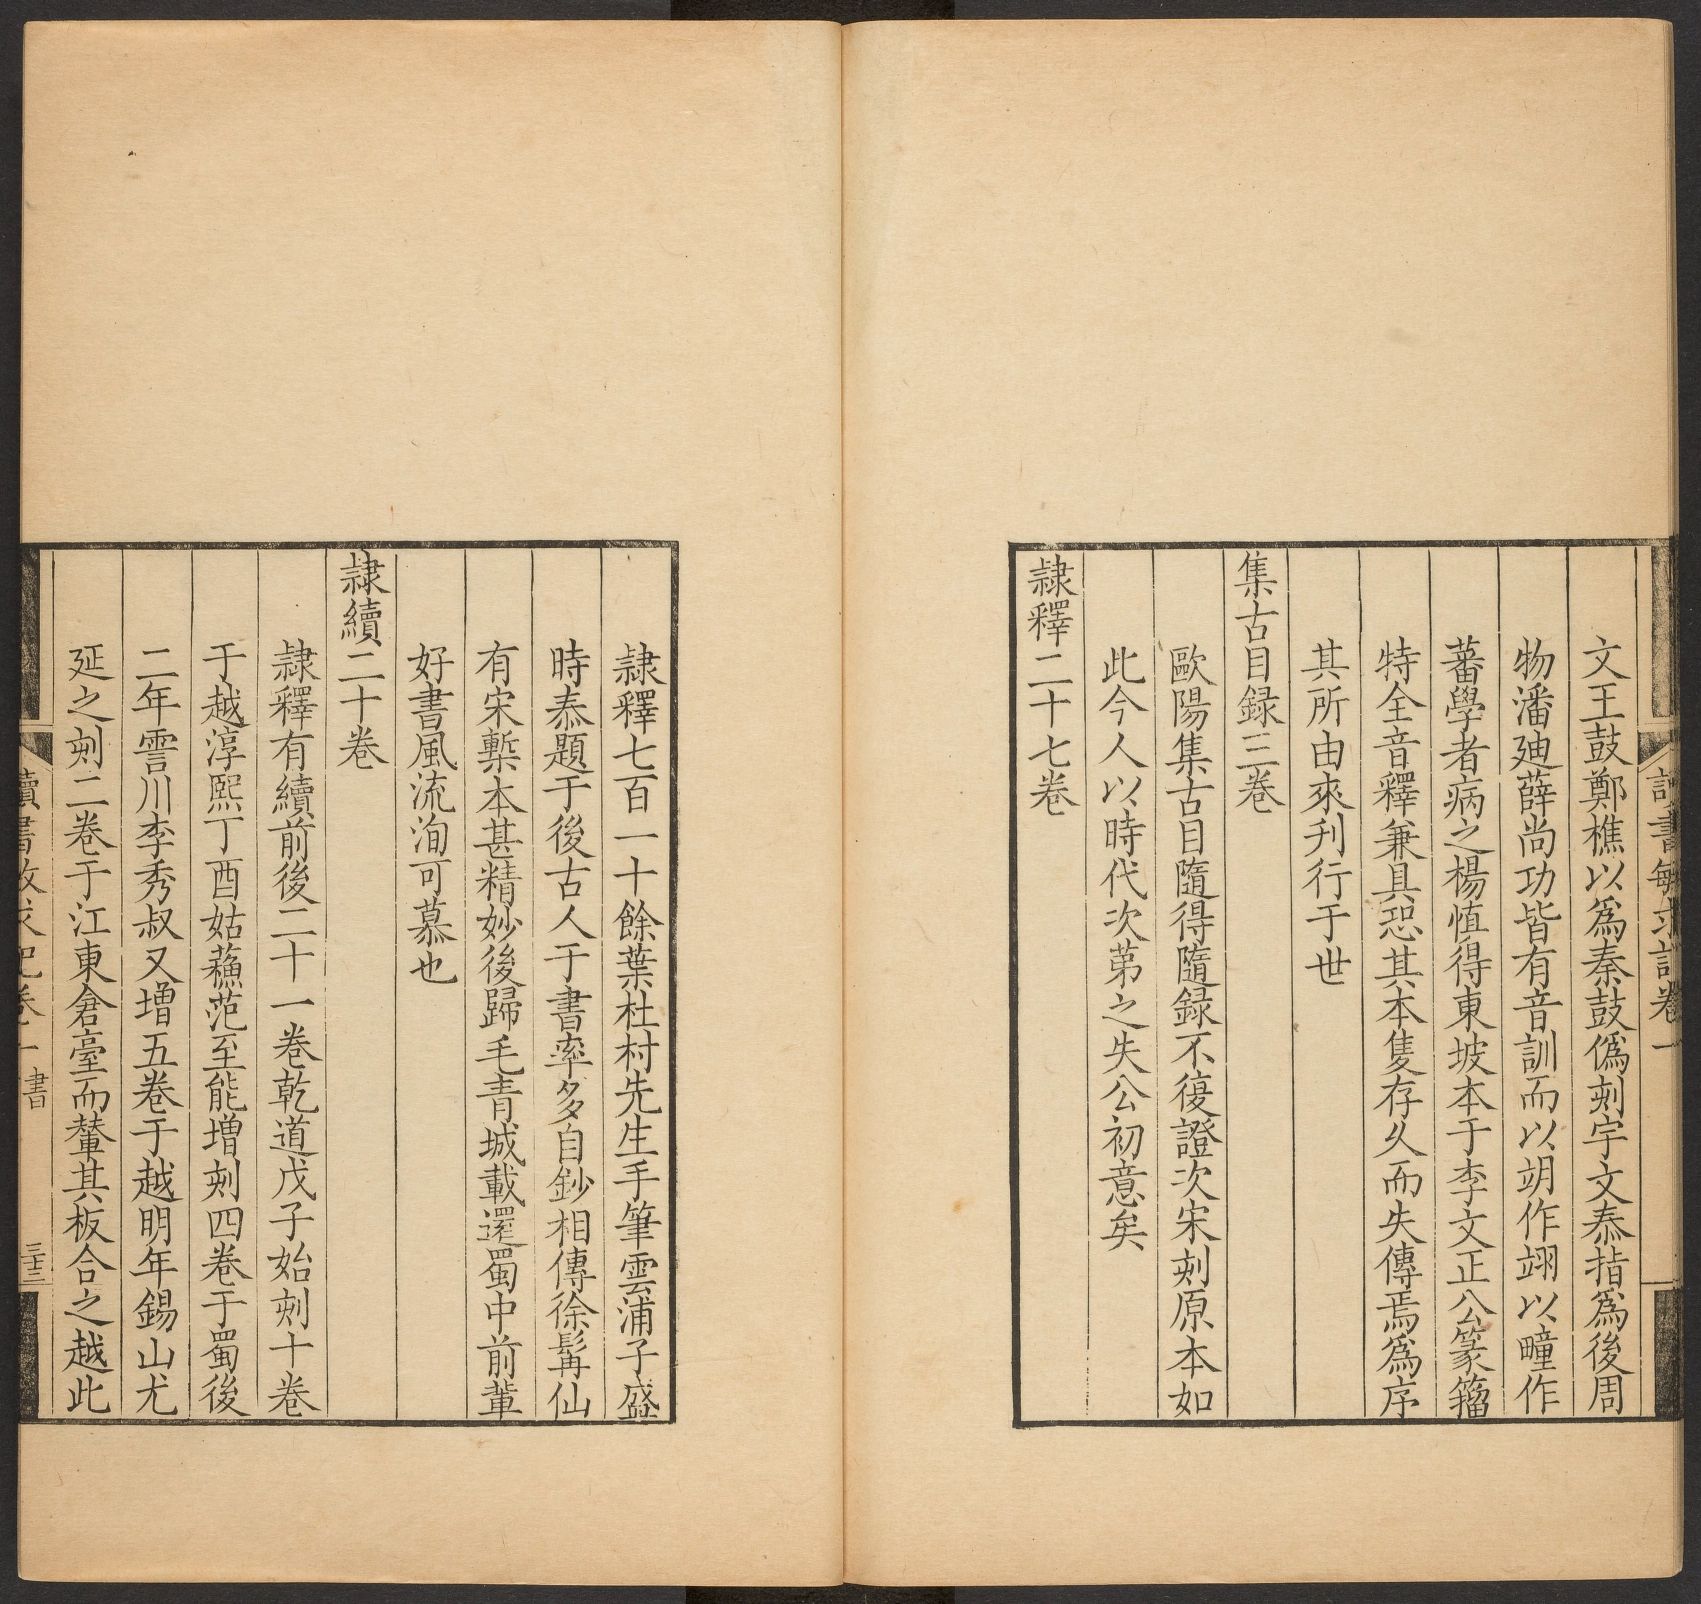 讀書敏求記卷一
文王鼓鄭樵以爲秦鼓僞刻宇文泰指爲後周
物潘廸薛尚功皆有音訓而以朙作翊以疃作
蕃學者病之楊慎得東坡本于李文正公篆籀
特全音釋兼具恐其本隻存久而失傳焉爲序
其所由來刋行于世
集古目録三卷
歐陽集古目隨得隨録不復證次宋刻原本如
此今人以時代次第之失公初意矣
隷釋二十七卷
隷釋七百一十餘葉杜村先生手筆雲浦子盛
時泰題于後古人于書率多自鈔相傳徐髯仙
有宋槧本甚精妙後歸毛青城載還蜀中前輩
好書風流洵可慕也
隷續二十卷
隷釋有續前後二十一卷乾道戊子始刻十卷
于越淳熙丁酉姑蘓范至能増刻四卷于蜀後
二年霅川李秀叔又増五卷于越明年錫山尤
延之刻二卷于江東倉臺而輦其板合之越此
讀書敏求記卷一 書 三十二